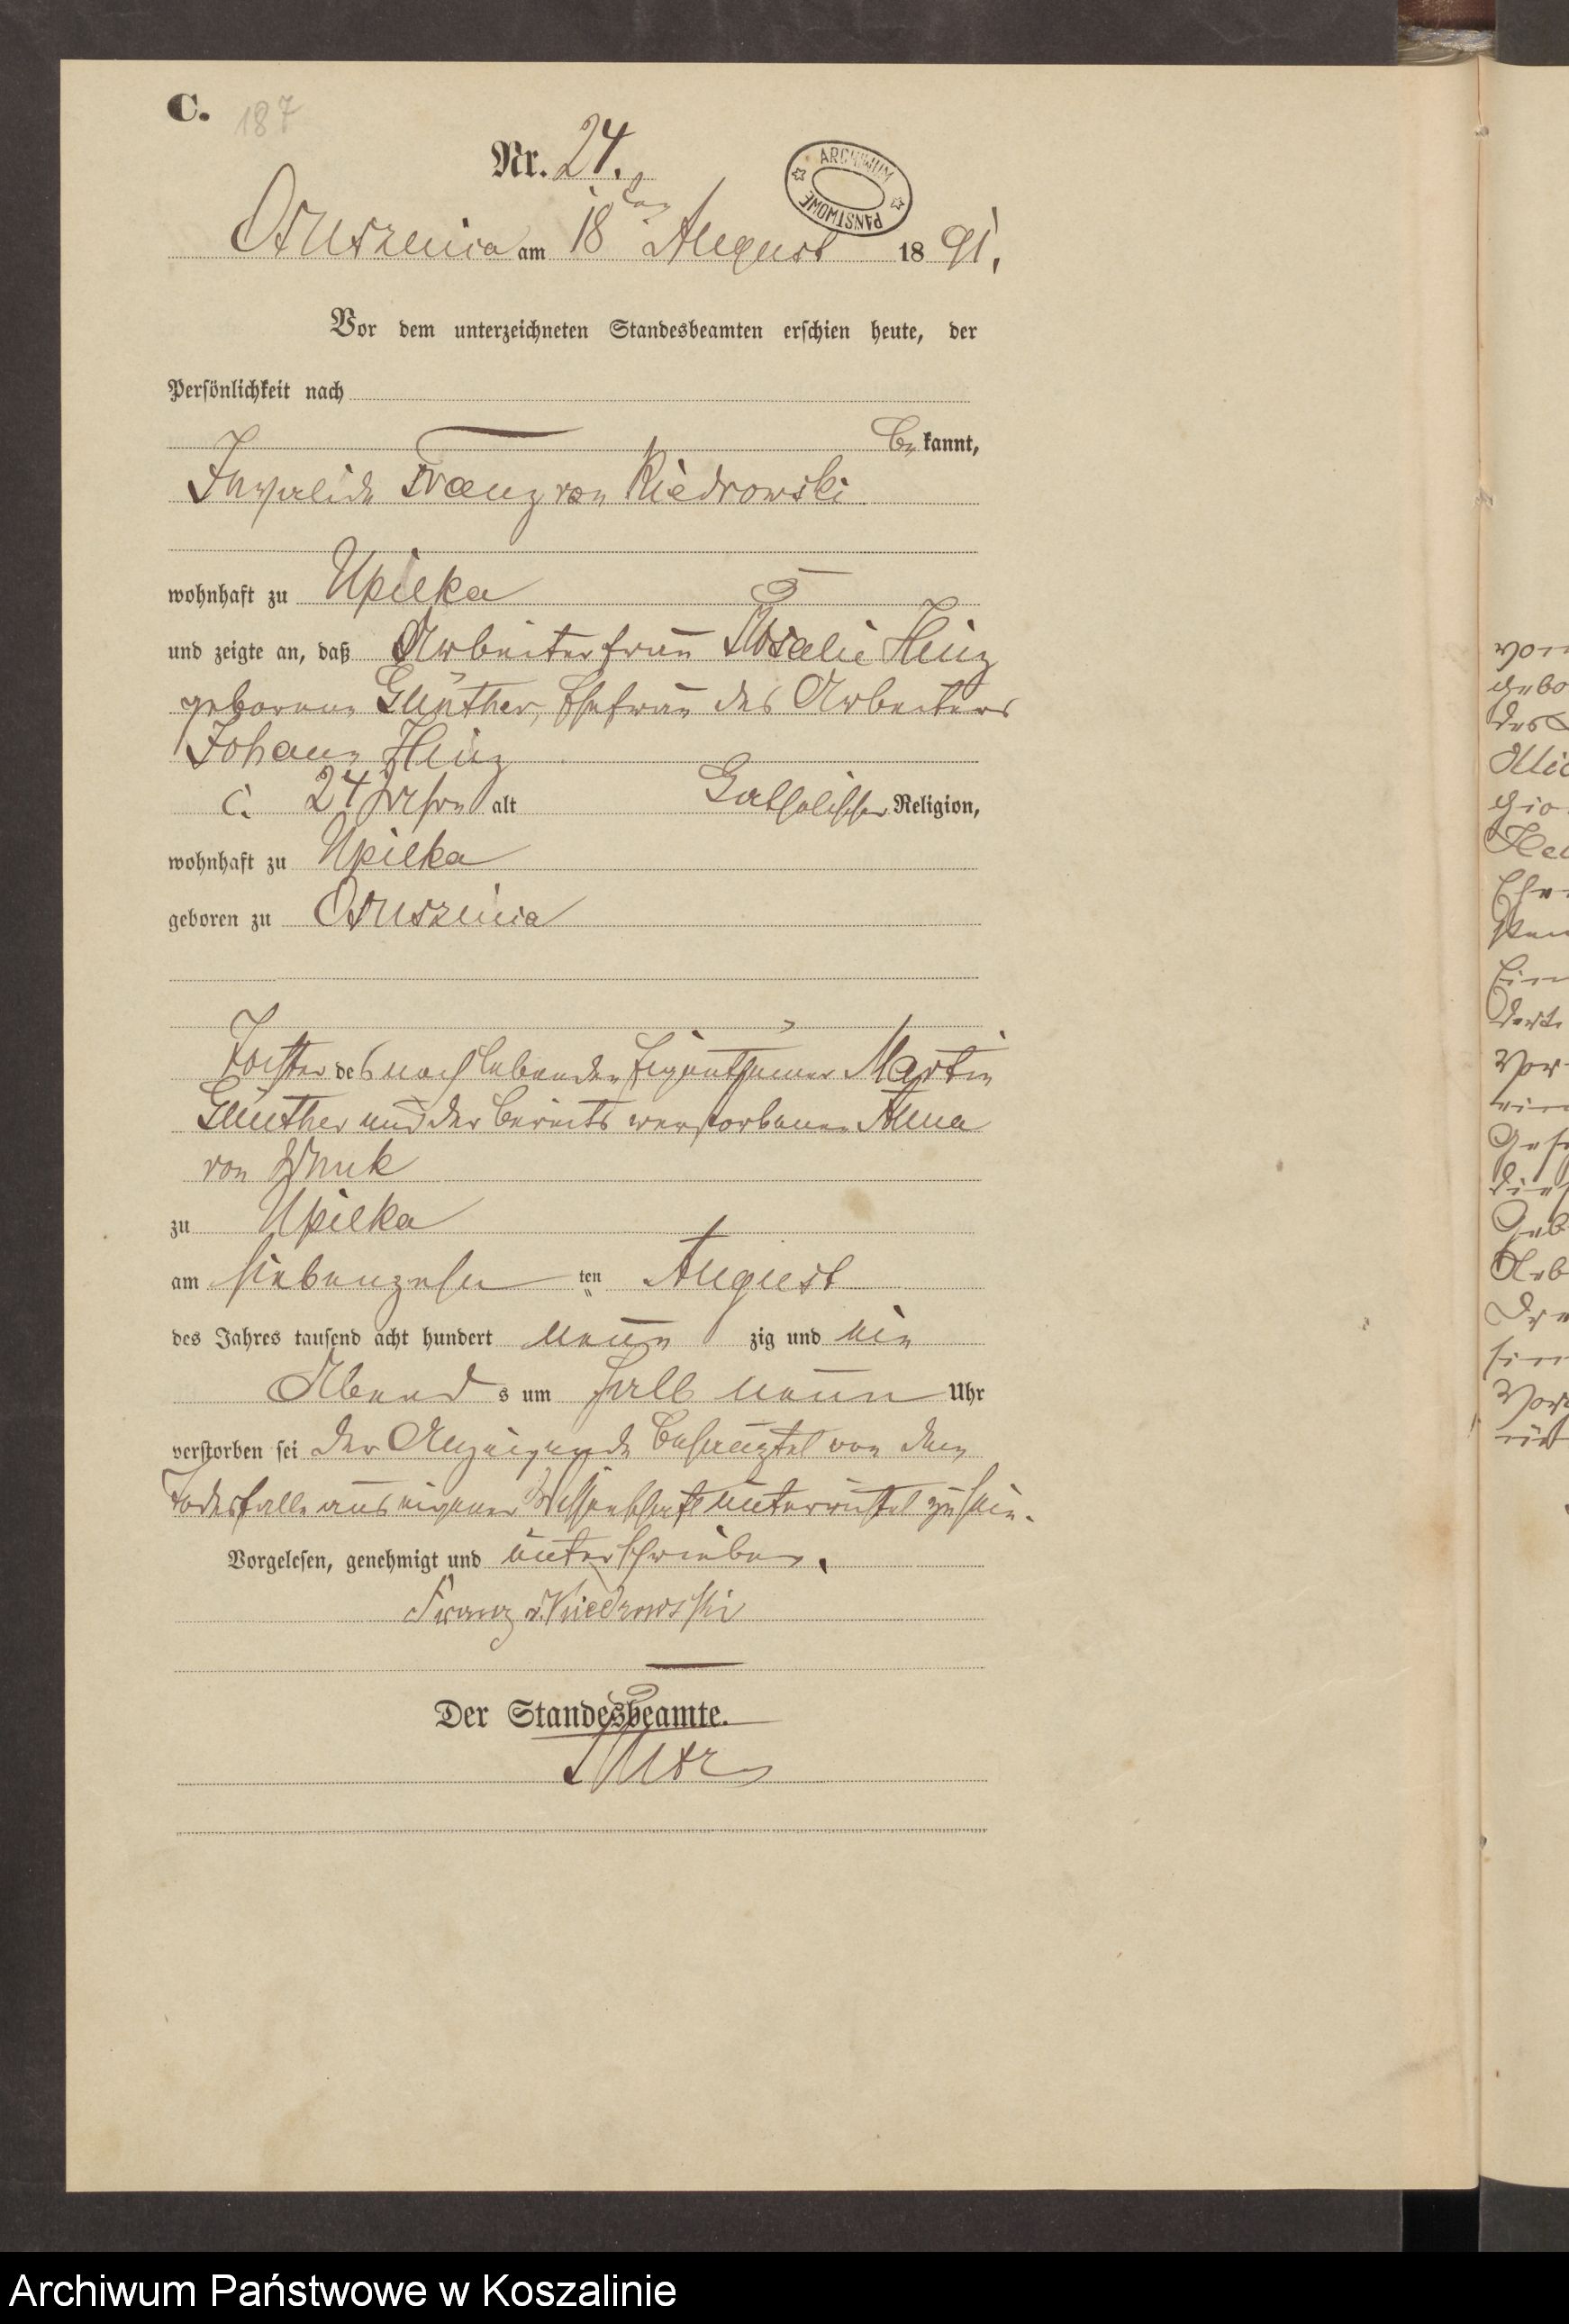 C. 187
Nr. 24.
ARCHIWUM PAŃSTWOWE
Ossuszenica am 18ten August 1891.
Vor dem unterzeichneten Standesbeamten erschien heute, der
Persönlichkeit nach
bekannt,
Invalide Franz von Kiedrowski
wohnhaft zu Upilka
und zeigte an, daß Arbeiterfrau Rosalie Heinz
geborene Günther, Ehefrau des Arbeiters
Johann Heinz
c. 24 Jahre alt Catholischer Religion,
wohnhaft zu Upilka
geboren zu Ossuszenica
Tochter des noch lebenden Eigenthümer Martin
Günther und der bereits verstorbenen Anna
von
zu Upilka
am siebenzehn ten August
des Jahres tausend acht hundert neun zig und ein
Abend s um halb neun Uhr
verstorben sei der Anzeigende behauptet von dem
Todesfalle aus eigener Wissenschaft unterrichtet zu sein.
Vorgelesen, genehmigt und unterschrieben.
Franz v. Kiedrowski
Der Standesbeamte.
von
gebo
des
Ehe
Ein
Vor
Geb
Vor
Archiwum Państwowe w Koszalinie